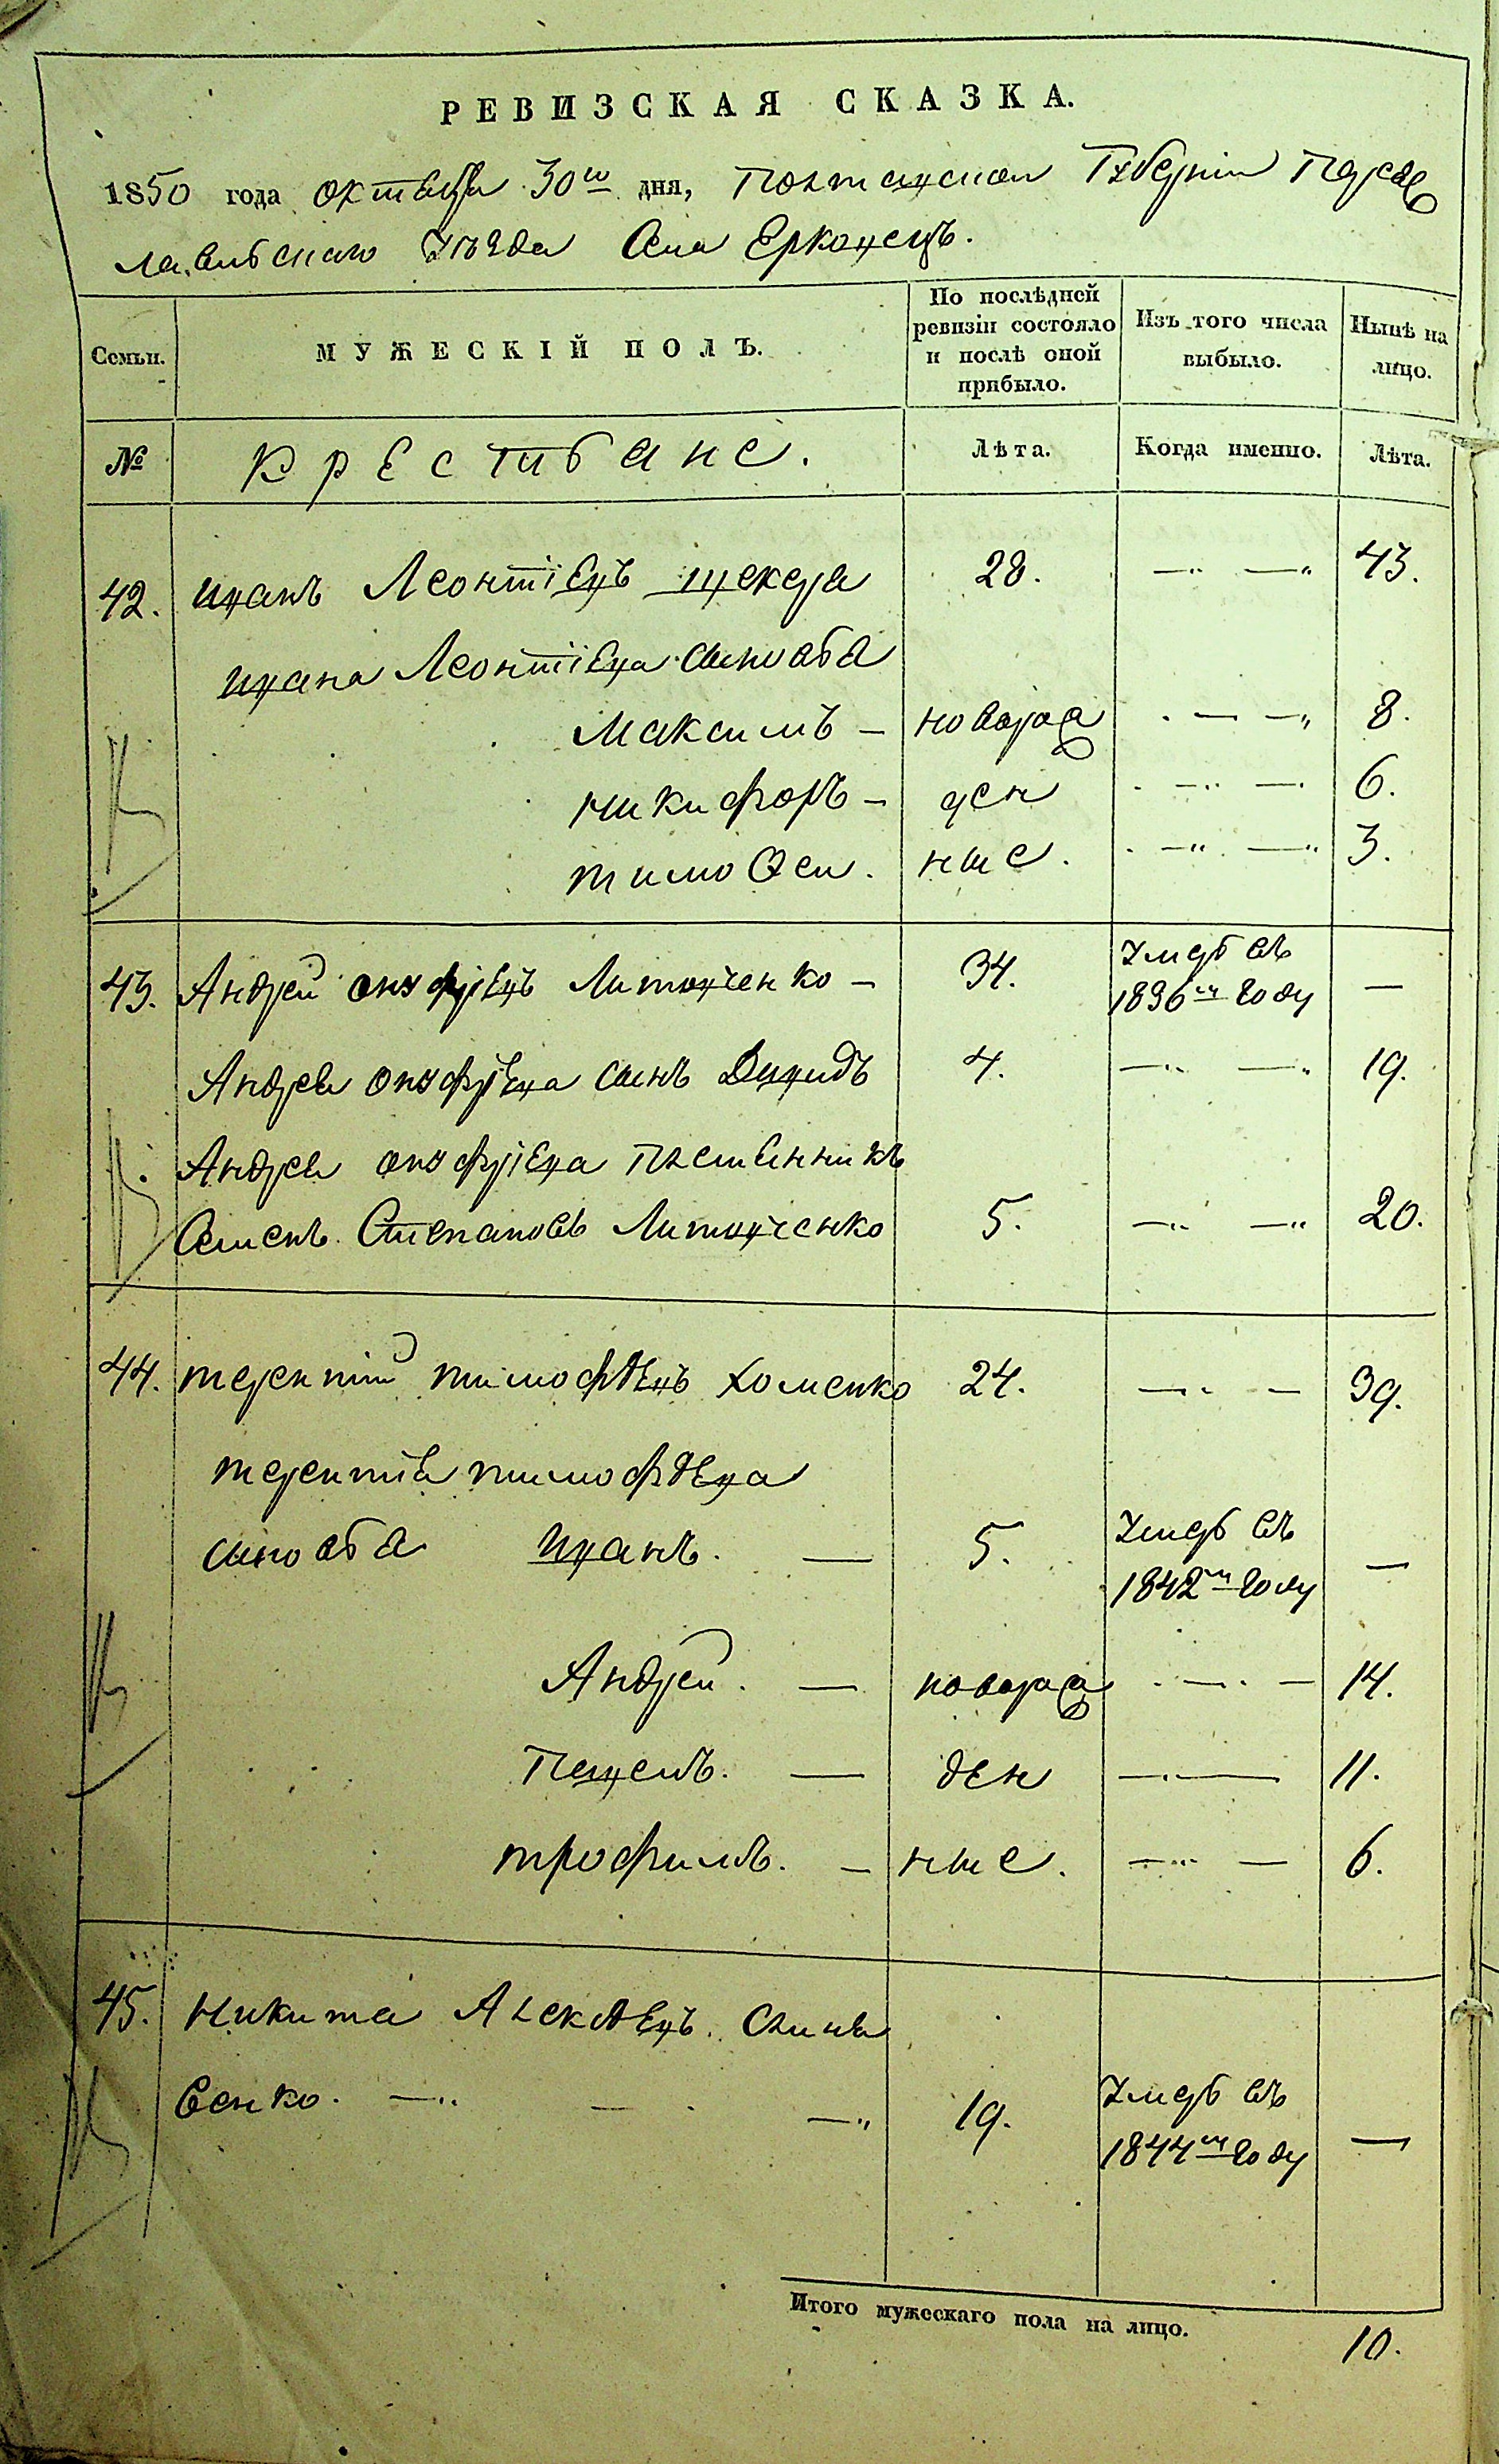 РЕВИЗСКАЯ СКАЗКА.
1850 года октября 30го дня, Полтавской Губерніи Переяс
лавльскаго Уезда Села Ерковецъ.
Семьи. МУЖЕСКІЙ ПОЛЪ. По послѣдней ревизіи состояло и послѣ оной прибыло. Изъ того числа выбыло. Нынѣ на лицо.
№ Крестьяне. Лѣта. Когда именно. Лѣта.
42. иванъ Леонтіевъ 28. 43.
ивана Леонтіева сыновья
Максимъ — новорож 8.
никифоръ — ден 6.
тимоѳей. ные. 3.
43. Андрей онуфріевъ Литовченко — 34. Умерь въ 1836м году —
Андрея онуфріева сынъ Давидъ 4. 19.
Андрея онуфріева племянникъ
Семенъ Степановъ Литовченко 5. 20.
44. терентій тимофѣевъ хоменко 24. 39.
терентія тимофѣева
сыновья иванъ. — 5. Умерь въ 1842м году —
Андрей. — новорож 14.
Павелъ. — ден 11.
трофимъ. — ные. 6.
45. Никита Алексѣевъ
венко. 19. Умерь въ 1844м году —
Итого мужескаго пола на лицо. 10.